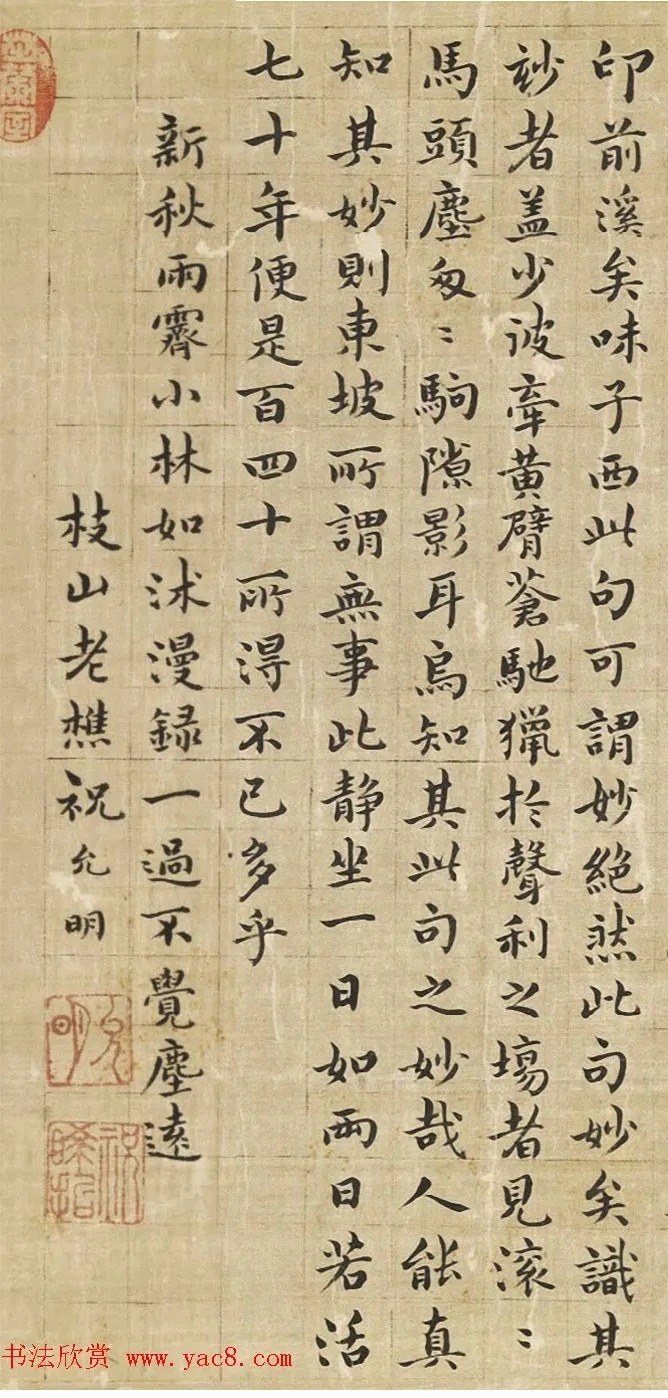 印前溪矣味子西此句可謂妙絶然此句妙矣識其
玅者盖少彼牽黄臂蒼馳獵於聲利之場者見滚〻
馬頭塵匆〻駒隙影耳烏知其此句之妙哉人能真
知其妙則東坡所謂無事此静坐一日如兩日若活
七十年便是百四十所得不已多乎
新秋雨霽小林如沭漫録一過不覺塵遠
枝山老樵祝允明
允明
書法欣赏 www.yac8.com